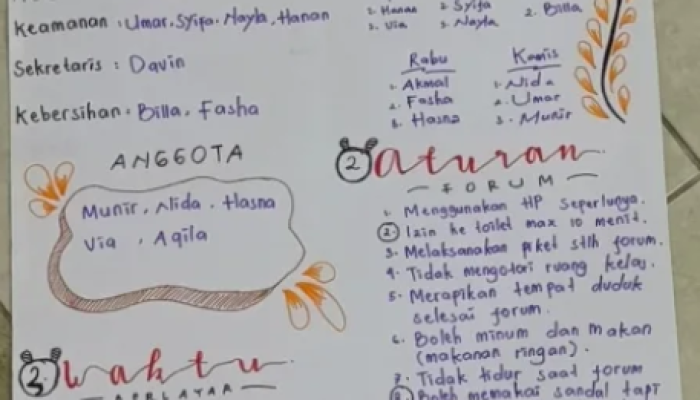 Keamanan : Umar, Syifa, Nayla, Hanan
Sekretaris : Davin
Kebersihan : Billa, Fasha
ANGGOTA
Munir, Nida, Hasna
Via, Aqila
3. Waktu
1. Hanan
3. Via
2. Syifa
3. Nayla
2. Billa
Rabu
1. Akmal
2. Fasha
3. Hasna
Kamis
1. Nida
2. Umar
3. Munir
2 aturan
FORUM
1. Menggunakan HP seperlunya.
2. Izin ke toilet max 10 menit.
3. Melaksanakan piket stlh forum.
4. Tidak mengotori ruang kelas.
5. Merapikan tempat duduk
selesai forum.
6. Boleh minum dan makan
(makanan ringan).
7. Tidak tidur saat forum
8. Boleh memakai sandal tapi